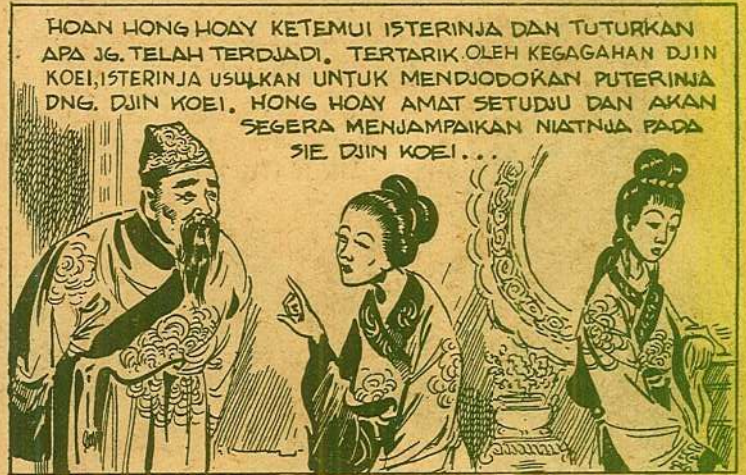 HOAN HONG HOAY KETEMUI ISTERINJA DAN TUTURKAN
APA JG. TELAH TERDJADI. TERTARIK OLEH KEGAGAHAN DJIN
KOEI, ISTERINJA USULKAN UNTUK MENDJODOKAN PUTERINJA
DNG. DJIN KOEI. HONG HOAY AMAT SETUDJU DAN AKAN
SEGERA MENJAMPAIKAN NIATNJA PADA
SIE DJIN KOEI...